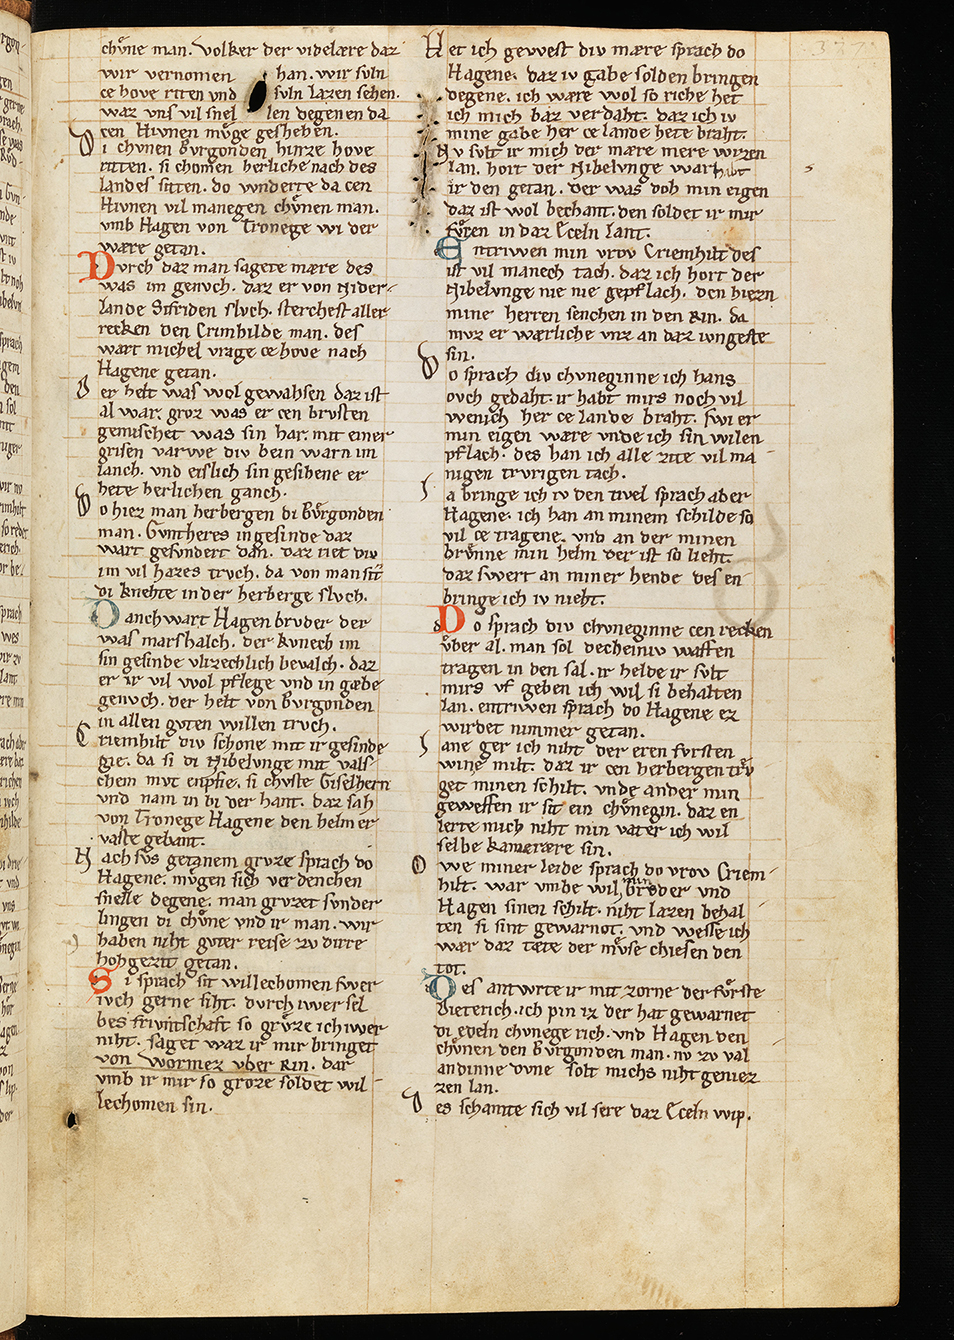 chůne man. Volker der videlære daz
wir vernomen han. wir suln
ce hove riten vnd suln lazen sehen.
waz vns vil snel len degenen da
cen Hivnen můge geshehen.
Di chvnen Bvrgonden hinze hove
riten. si chomen herliche nach des
landes siten. do wnderte da cen
Hivnen vil manegen chůnen man.
vmb Hagen von Tronege wi der
wære getan.
Dvrch daz man sagete mære des
was im genvch. daz er von Nider
lande Sifriden slvch. sterchest aller
recken den Crimhilde man. des
wart michel vrage ce hove nach
Hagene getan.
Der helt was wol gewahsen daz ist
al war. groz was er cen brvsten
gemischet was sin har. mit einer
grisen varwe div bein warn im
lanch. vnd eislich sin gesihene er
hete herlichen ganch.
Do hiez man herbergen di Bůrgonden
man. Gvntheres ingesinde daz
wart gesvndert dan. daz riet div
im vil hazes trvch. da von man sit
di knehte in der herberge slvch.
Danchwart Hagen brvder der
was marshalch. der kvnech im
sin gesinde vlizechlich bevalch. daz
er ir vil wol pflege vnd in gæbe
genvch. der helt von Bvrgonden
in allen gvten willen trvch.
Criemhilt div schone mit ir gesinde
gie. da si di Nibelvnge mit vals
chem mvt enpfie. si chvste Giselhern
vnd nam in bi der hant. daz sah
von Tronege Hagene den helm er
vaste gebant.
Nach svs getanem grvze sprach do
Hagene. mvgen sich verdenchen
snelle degene. man grvzet svnder
lingen di chůne vnd ir man. wir
haben niht gvter reise zv dirre
hohgezit getan.
Si sprach sit willechomen swer
ivch gerne siht. dvrch iwer sel
bes frivntschaft so grůze ich iwer
niht. saget waz ir mir bringet
von Wormez vber Rin. dar
vmb ir mir so groze soldet wil
lechomen sin.
Het ich gewest div mære sprach do
Hagene. daz iv gabe solden bringen
degene. ich wære wol so riche het
ich mich baz verdaht. daz ich iv
mine gabe her ce lande hete braht.
Nv svlt ir mich der mære mere wizzen
lan. hort der Nibelvnge war habt
ir den getan. der was doh min eigen
daz ist wol bechant. den soldet ir mir
fůren in daz Eceln lant.
Entriwen min vrov Criemhilt des
ist vil manech tach. daz ich hort der
Nibelvnge nie nie gepflach. den hiezn
mine herren senchen in den Rin. da
mvz er wærliche vnz an daz ivngeste
sin.
Do sprach div chvneginne ich hans
ovch gedaht. ir habt mirs noch vil
wenich her ce lande braht. swi er
min eigen wære vnde ich sin wilen
pflach. des han ich alle zite vil ma
nigen trvrigen tach.
Ja bringe ich iv den tivel sprach aber
Hagene. ich han an minem schilde so
vil ce tragene. vnd an der minen
brůnne min helm der ist so lieht.
daz swert an miner hende des en
bringe ich iv nieht.
Do sprach div chvneginne cen recken
vber al. man sol decheiniv waffen
tragen in den sal. ir helde ir svlt
mirs vf geben ich wil si behalten
lan. entriwen sprach do Hagene ez
wirdet nimmer getan.
Jane ger ich niht der eren fvrsten
wine milt. daz ir cen herbergen trv̊
get minen schilt. vnde ander min
geweffen ir sit ein chůnegin. daz en
lerte mich niht min vater ich wil
selbe kamerære sin.
Owe miner leide sprach do vrov Criem
hilt. war vmbe wil min brvder vnd
Hagen sinen schilt. niht lazen behal
ten si sint gewarnot. vnd wesse ich
wær daz tæte der můse chiesen den
tot.
Des antwrte ir mit zorne der fůrste
Dieterich. ich pin iz der hat gewarnet
di edeln chvnege rich. vnd Hagen den
chůnen den Bvrgonden man. nv zv val
andinne dvne solt michs niht geniez
zen lan.
Des schamte sich vil sere daz Eceln wip.